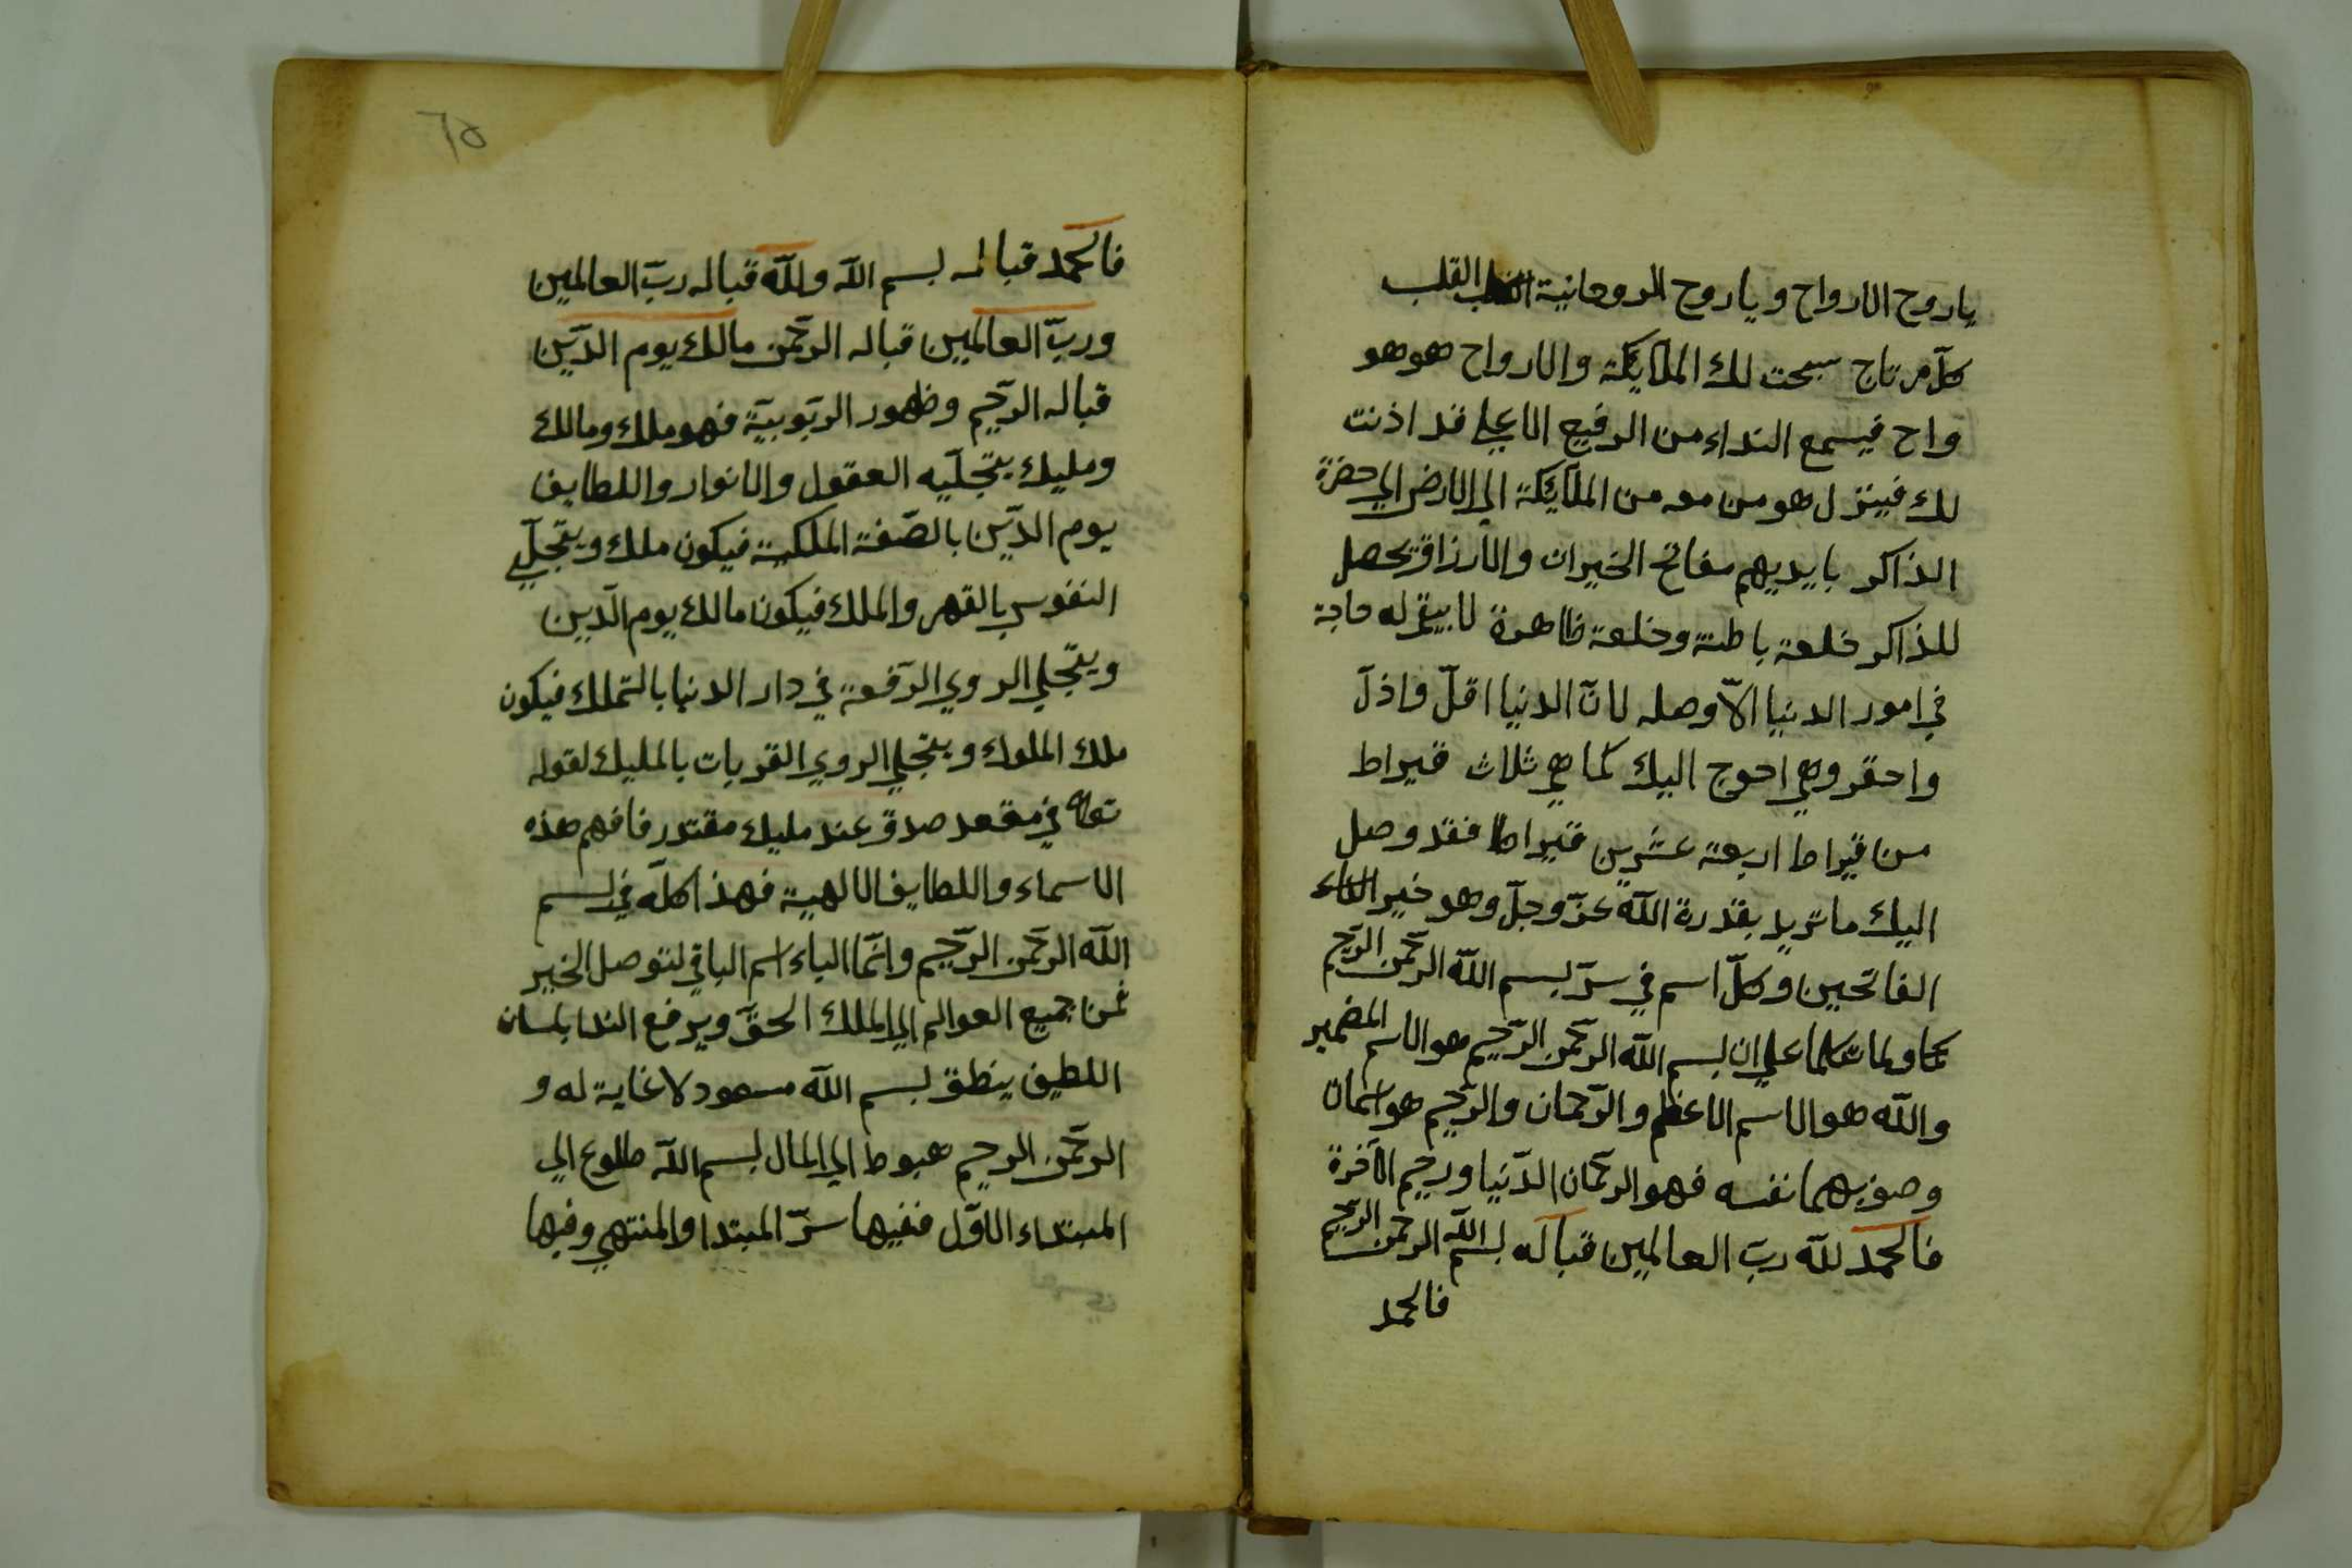 ياروح الارواح وياروح الروحانية القلب
كل مرتاج سبحت لك الملآيكة والارواح هو هو
واح فيسمع النداء من الرفيع الاعلي قد اذنت
لك فينزل هو من معه من الملآيكة الي الارض الي حضرة
الذاكر بايديهم مفاتح الخيرات والارزاق يحصل
للذاكر خلعة باطنة وخلعة ظاهرة لا يبقي له حاجة
في امور الدنيا الّا وصله لانّ الدنيا اقلّ واذلّ
واحقر وهي احوج اليك كما هي ثلاث قيراط
من قيراط اربعة عشرين قيراطا فقد وصل
اليك ما تريد بقدرة اللّه عزّ وجلّ وهو خير
الفاتحين وكلّ اسم في سرّ بسم اللّه الرحمن الرحيم
علي ان بسم اللّه الرحمن الرّحيم هو الاسم المضمير
واللّه هو الاسم الاعظم والرّحمان والرّحيم هو اسمان
وصف بهما نفسه فهو الرحمان الدّنيا ورحيم الآخرة
فالحمد للّه ربّ العالمين قباله بسم اللّه الرحمن الرحيم
فالحمد
٦٥
فالحمد قباله بسم اللّه وللّه قباله ربّ العالمين
وربّ العالمين قباله الرحّمن مالك يوم الدّين
قباله الرحّيم وظهور الربوبيّة فهو ملك ومالك
ومليك يتجلّيه العقول والانوار واللطايف
يوم الدّين بالصّفة الملكية فيكون ملك ويتجلّي
النفوس بالقهر والملك فيكون مالك يوم الدّين
ويتجّلي الروي الرّفعة في دار الدنيا بالتملك فيكون
ملك الملوك ويتجلي الروي القربات بالمليك لقوله
تعالى في مقعد صدق عند مليك مقتدر فافهم هذه
الاسماء واللطايف الالهية فهذا كلّه في بسم
اللّه الرحّمن الرحّيم وانّما الباء اسم الباقي لتوصل الخير
من جميع العوالم الي الملك الحقّ ويرفع الندا بلسان
اللطيف ينطق بسم اللّه مسعود لا غاية له و
الرحّمن الرحيم هبوط الي المال بسم اللّه طلوع الي
المبتداء الاوّل ففيها سرّ المبتدا والمنتهي وفيها